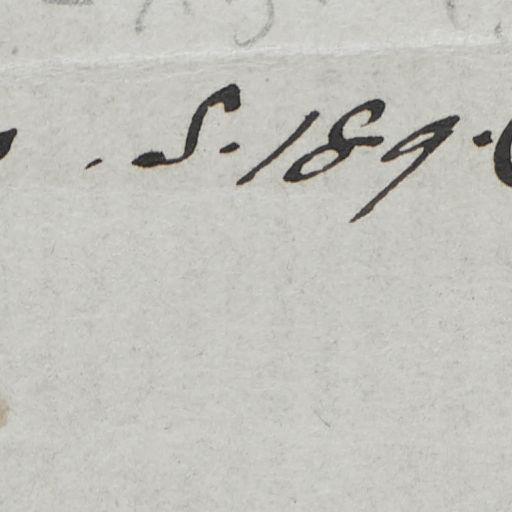 . S. 189.